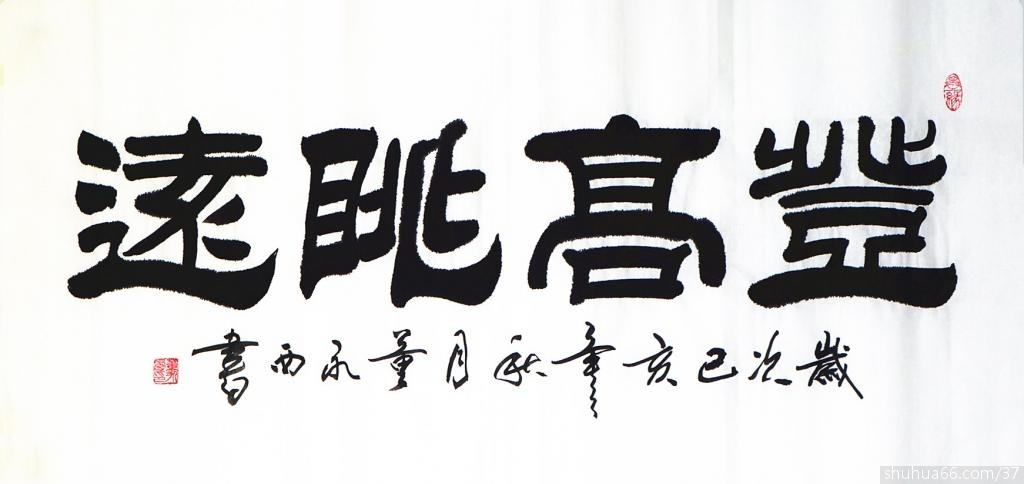 登高眺遠
歲次己亥年秋月董永西書
shuhua66.com/37